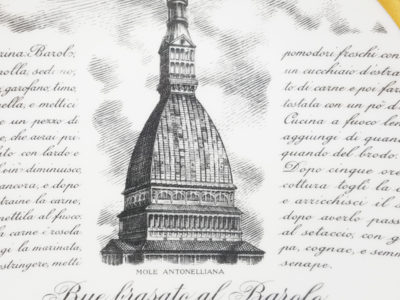 rina, Barolo
rolla, sedano,
garofano, timo,
nella, e mettici
e un pezzo di
e, che avrai pri
ato con lardo e
ancora, e dopo
traine la carne,
mettila al fuoco.
a carne è rosola
gi la marinata,
stringere, metti
pomodori freschi con
un cucchiaio d'estra
to di carne e poi far
tostata con un pò d
Cucina a fuoco len
aggiungi di quan
quando del brodo.
Dopo cinque ore
cottura togli la c
e arricchisci il s
dopo averlo pass
al setaccio, con g
pa, cognac, e sem
senape.
MOLE ANTONELLIANA
Bue brasato al Barolo